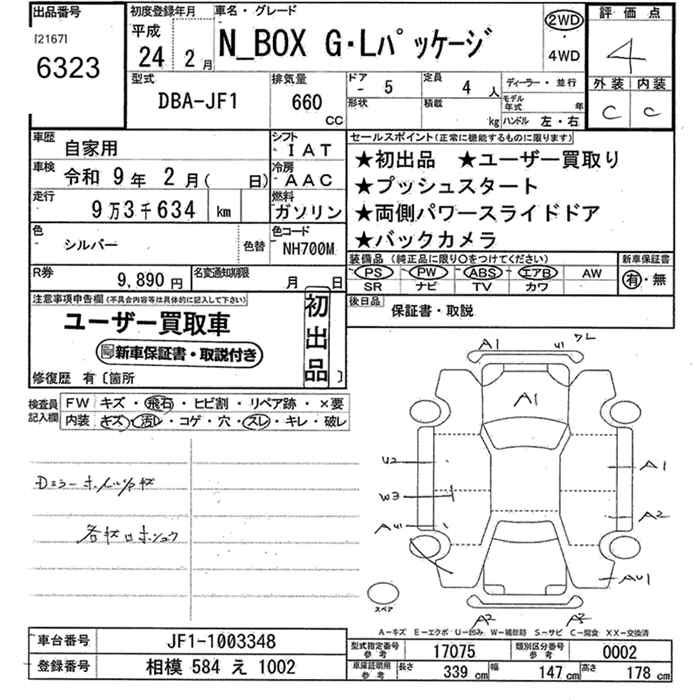 出品番号
[2167]
6323
初度登録年月
平成
24 2月
車名・グレード
N_BOX G・Lパッケージ
2WD
4WD
評価点
4
外装 内装
C C
型式
DBA-JF1
排気量
660
CC
ドア
- 5
形状
定員
4 人
積載
kg
ディーラー・並行
モデル年式 年
ハンドル 左・右
車歴
自家用
シフト
IAT
車検
令和 9年 2月( 日)
冷房
AAC
走行
9万3千634 km
燃料
ガソリン
色
シルバー
色替
色コード
NH700M
R券
9,890円
名変通知期限
月 日
セールスポイント(正常に機能するものに限ります)
★初出品 ★ユーザー買取り
★プッシュスタート
★両側パワースライドドア
★バックカメラ
装備品(純正品に限り○をつけてください)
PS PW ABS エアB AW
SR ナビ TV カワ
新車保証書
有・無
後日品
保証書・取説
注意事項申告欄(不具合内容等は具体的に記入して下さい)
ユーザー買取車
新車保証書・取説付き
初出品
修復歴 有〔箇所 〕
検査員記入欄
FW キズ・飛石・ヒビ割・リペア跡・×要
内装 キズ・汚レ・コゲ・穴・スレ・キレ・破レ
A1
U1
A1
U2
A1
W3
A2
AU1
スペア
A2
A-キズ E-エクボ U-凹み W-補修跡 S-サビ C-腐食 XX-交換済
車台番号 JF1-1003348
登録番号 相模 584 え 1002
型式指定番号参考 17075
類別区分番号参考 0002
車庫証明用参考
長さ 339 cm 幅 147 cm 高さ 178 cm